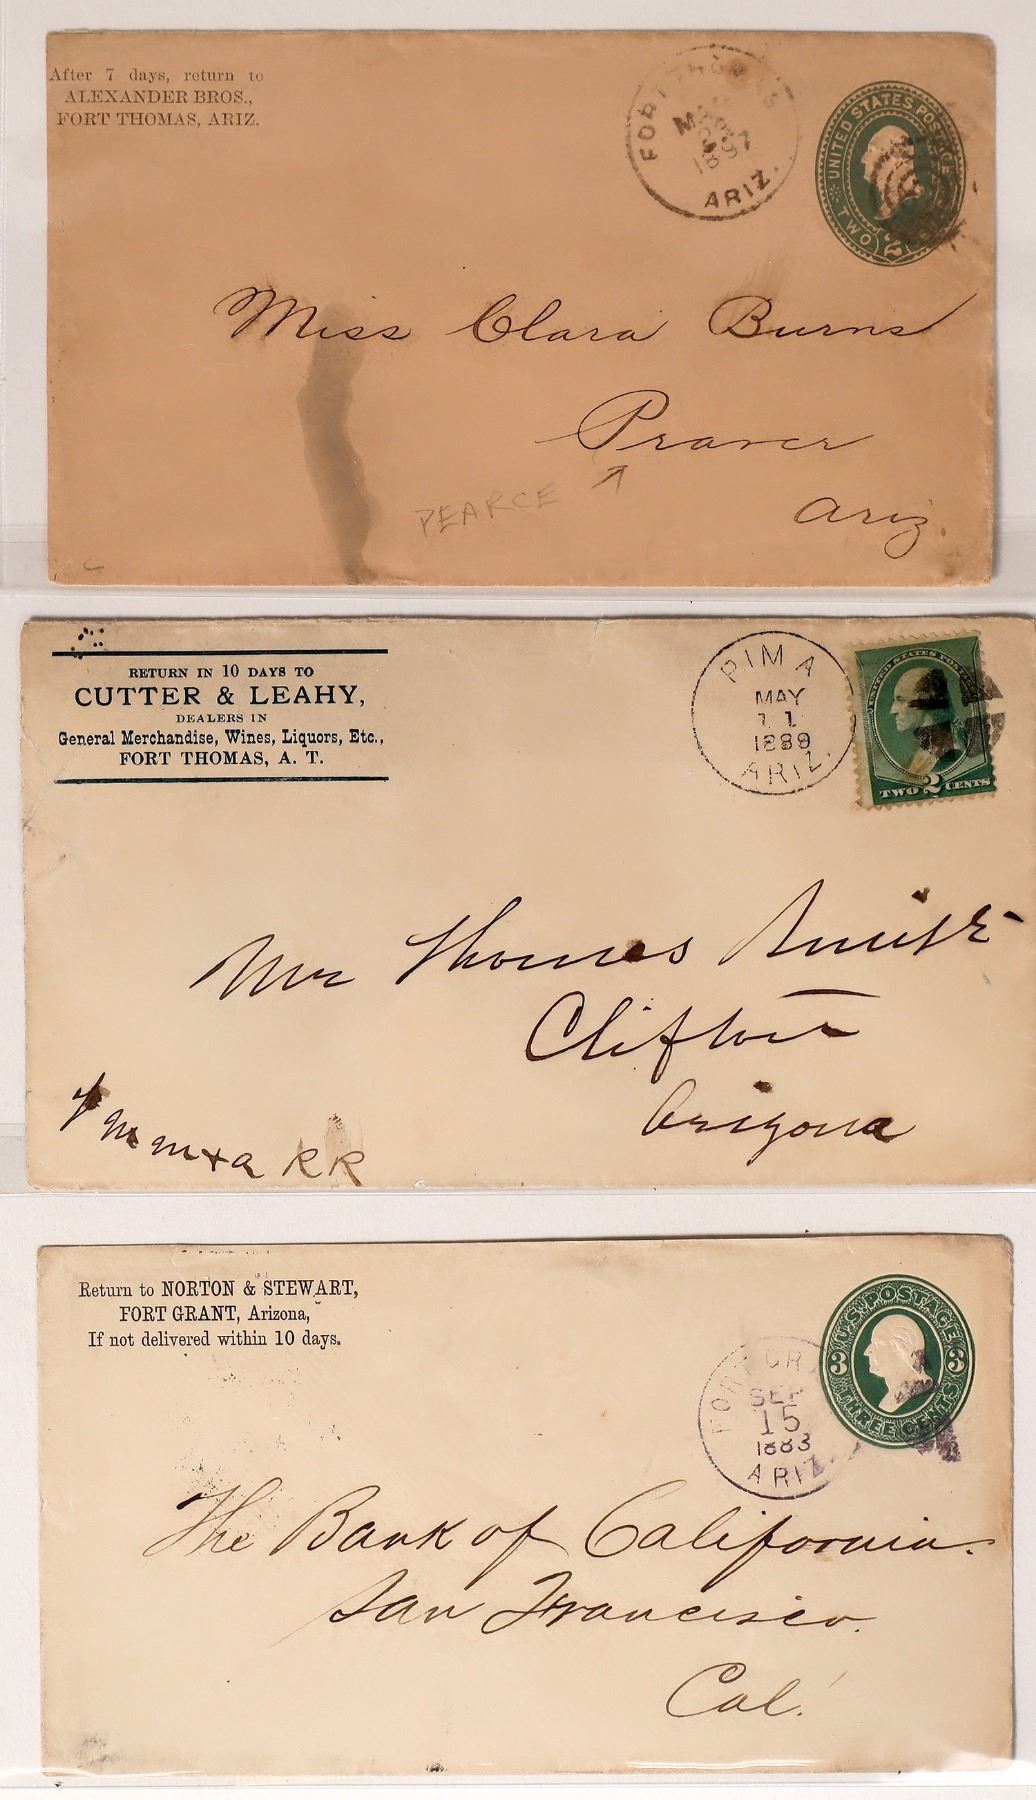 After 7 days, return to
ALEXANDER BROS.,
FORT THOMAS, ARIZ.
FORT THOMAS
MAR
1897
ARIZ.
UNITED STATES POSTAGE
TWO 2 CENTS
Miss Clara Burns
PEARCE
Ariz.
RETURN IN 10 DAYS TO
CUTTER & LEAHY,
DEALERS IN
General Merchandise, Wines, Liquors, Etc.,
FORT THOMAS, A. T.
PIMA
MAY
11
1889
ARIZ.
UNITED STATES POSTAGE
TWO 2 CENTS
Mr Thomas Smith
Clifton
Arizona
A & N M R R
Return to NORTON & STEWART,
FORT GRANT, Arizona,
If not delivered within 10 days.
FORT GR
SEP
15
1883
ARIZ.
U.S. POSTAGE
3 3
THREE CENTS
The Bank of California.
San Francisco.
Cal.